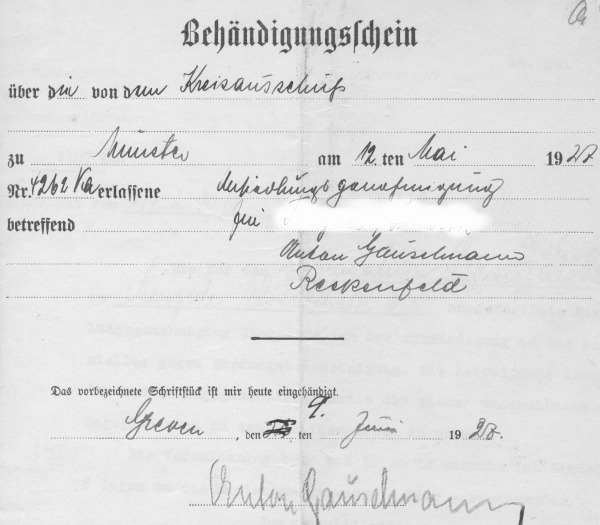 Behändigungsschein
über die von dem Kreisausschuß
zu Münster am 12. ten Mai 1927
Nr. 4262 Va erlassene Ansiedlungsgenehmigung
betreffend für
Anton Gauselmann
Reckenfeld
Das vorbezeichnete Schriftstück ist mir heute eingehändigt.
Greven, den 9. ten Juni 1927.
Anton Gauselmann